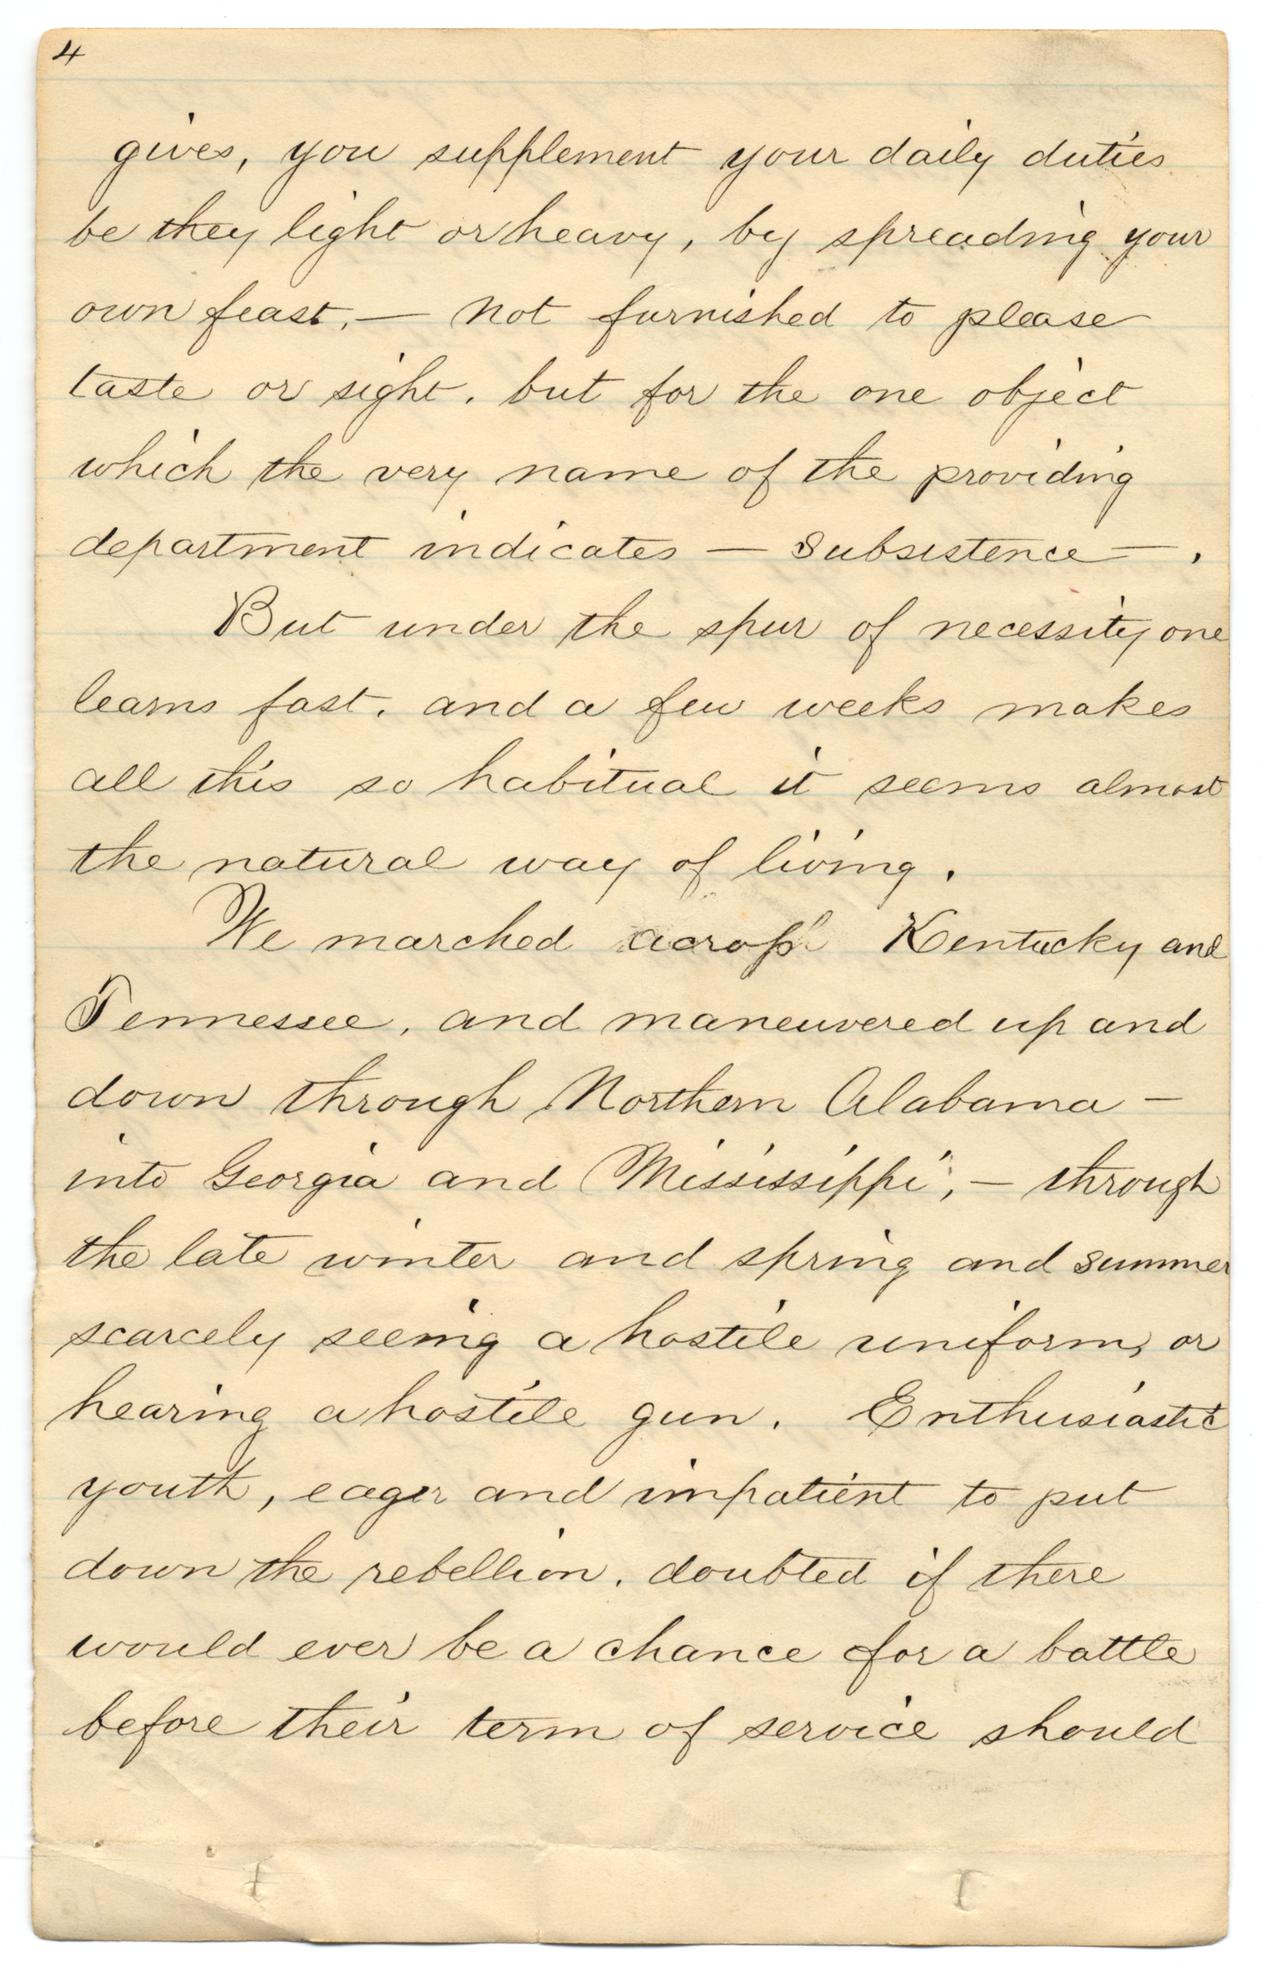 4
gives, you supplement your daily duties
be they light or heavy, by spreading your
own feast, — not furnished to please
taste or sight, but for the one object
which the very name of the providing
department indicates — Subsistence — .
But under the spur of necessity one
learns fast, and a few weeks makes
all this so habitual it seems almost
the natural way of living.
We marched across Kentucky and
Tennessee, and maneuvered up and
down through Northern Alabama —
into Georgia and Mississippi, — through
the late winter and spring and summer
scarcely seeing a hostile uniform, or
hearing a hostile gun. Enthusiastic
youth, eager and impatient to put
down the rebellion, doubted if there
would ever be a chance for a battle
before their term of service should